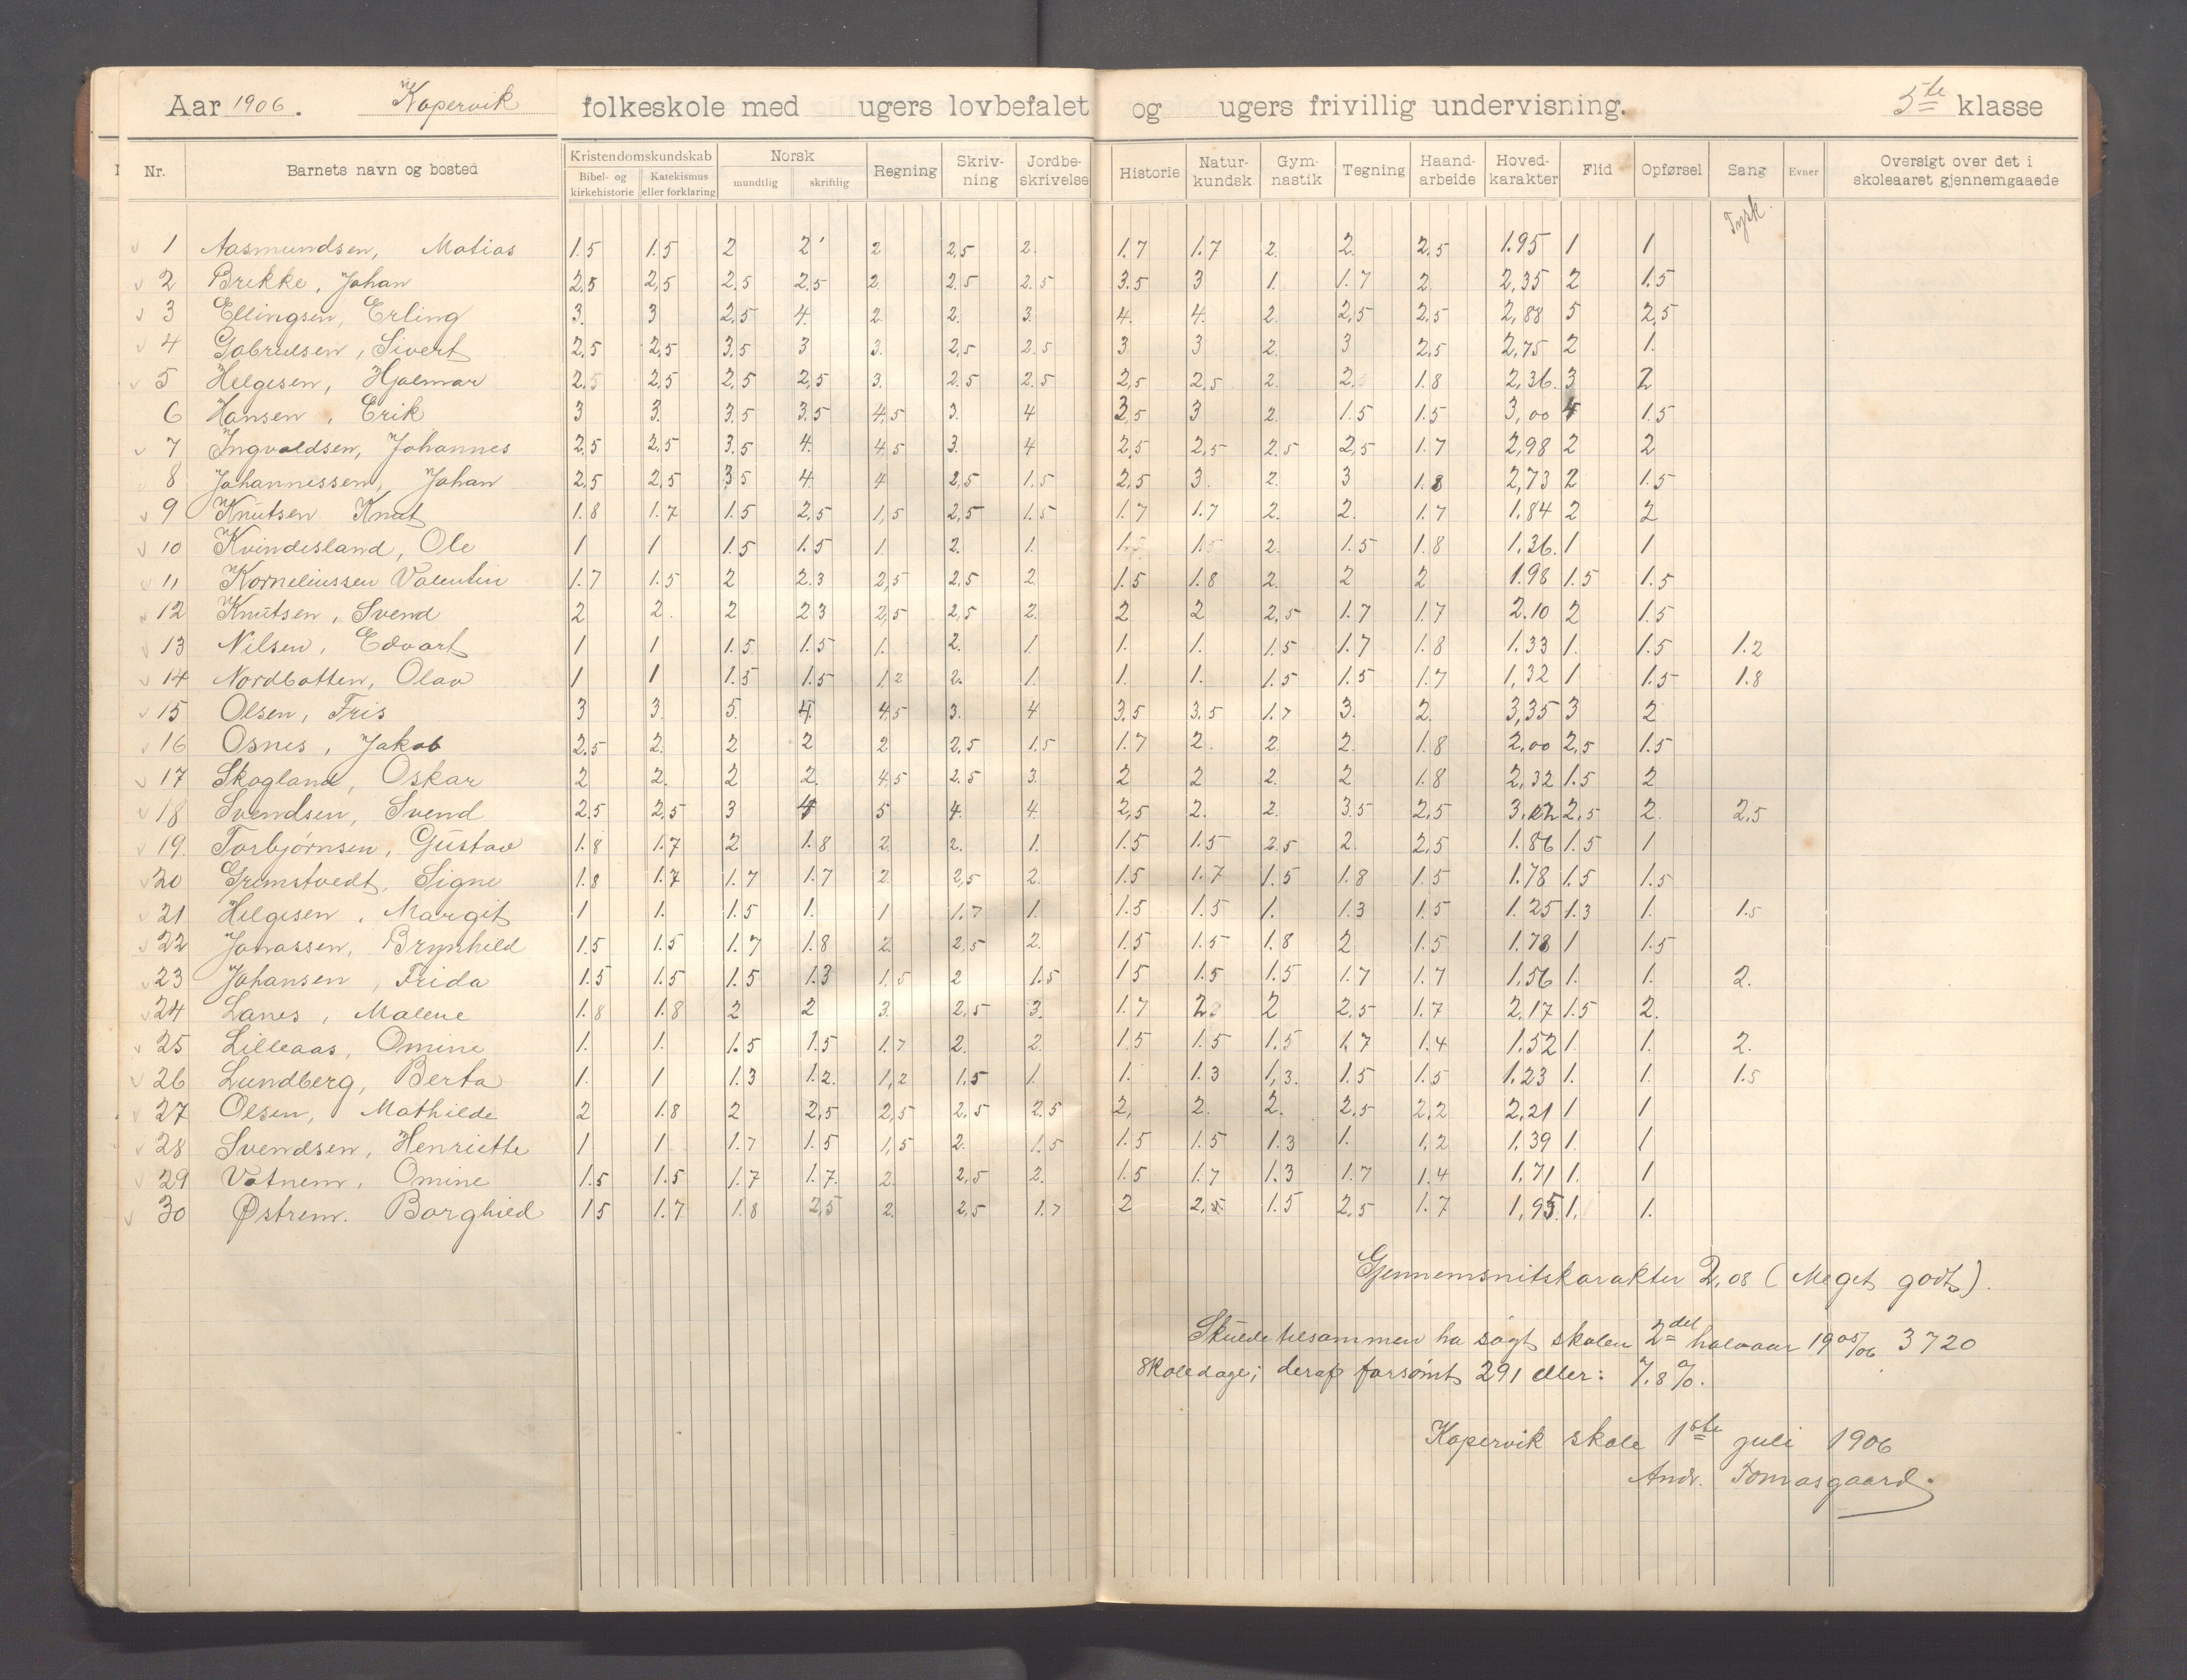 Aar 1906. Kopervik folkeskole med ugers lovbefalet og ugers frivillig undervisning. 5te klasse
Nr. Barnets navn og bosted Kristendomskundskab Bibel- og kirkehistorie Katekismus eller forklaring Norsk mundtlig skriftlig Regning Skriv-ning Jordbe-skrivelse Historie Natur-kundsk Gym-nastik Tegning Haand-arbeide Hoved-karakter Flid Opførsel Sang Evner Oversigt over det i skoleaaret gjennemgaaede
Tysk.
1 Aasmundsen, Matias 1.5 1.5 2 2 2 2,5 2. 1.7 1.7 2. 2. 2,5 1.95 1 1
2 Brekke, Johan 2,5 2,5 2,5 2.5 2. 2.5 2.5 3.5 3 1. 1.7 2. 2,35 2 1.5
3 Ellingsen, Erling 3. 3 2,5 4. 2. 2. 3. 4. 4. 2. 2,5 2.5 2,88 5 2,5
4 Gabrielsen, Sivert 2,5 2,5 3.5 3 3. 2,5 2.5 3 3 2. 3 2,5 2,75 2 1.
5 Helgesen, Hjalmar 2.5 2,5 2,5 2,5 3. 2.5 2.5 2,5 2,5 2. 2. 1.8 2,36. 3 2
6 Hansen, Erik 3 3. 3.5 3.5 4,5 3. 4 3,5 3 2. 1.5 1.5 3,00 4 1.5
7 Ingvaldsen, Johannes 2,5 2,5 3.5 4. 4,5 3. 4 2,5 2,5 2.5 2,5 1.7 2,98 2 2
8 Johannessen, Johan 2,5 2,5 3.5 4. 4 2,5 1.5 2,5 3. 2. 3 1.8 2,73 2 1.5
9 Knutsen Knut 1.8 1.7 1.5 2.5 1,5 2,5 1.5 1.7 1.7 2. 2. 1.7 1.84 2 2
10 Kvindesland, Ole 1 1 1.5 1.5 1. 2. 1. 1.5 1.5 2. 1.5 1.8 1,36. 1 1
11 Korneliussen Valentin 1.7 1.5 2 2.3 2,5 2.5 2. 1.5 1.8 2. 2 2 1.98 1.5 1.5
12 Knutsen, Svend 2 2. 2 2 3 2,5 2,5 2. 2 2 2,5 1.7 1.7 2.10 2 1.5
13 Nilsen, Edvart 1 1 1.5 1.5 1. 2. 1 1. 1. 1.5 1.7 1.8 1.33 1. 1.5 1.2
14 Nordbotten, Olav 1 1 1.5 1.5 1.2 2. 1. 1. 1. 1.5 1.5 1.7 1,32 1 1.5 1.8
15 Olsen, Fris 3 3. 5. 4. 4,5 3. 4 3.5 3.5 1.7 3. 2. 3,35 3 2
16 Osnes, Jakob 2.5 2. 2 2 2 2,5 1.5 1.7 2. 2. 2. 1.8 2,00 2,5 1.5
17 Skogland, Oskar 2 2. 2 2. 4,5 2.5 3. 2 2 2. 2 1.8 2,32 1.5 2
18 Svendsen, Svend 2.5 2,5 3 4 5 4. 4. 2,5 2. 2. 3.5 2,5 2,5 2. 2,5
19. Torbjørnsen, Gustav 1.8 1.7 2 1.8 2. 2. 1. 1.5 1.5 2.5 2. 2,5 1.86 1.5 1
20 Grimstvedt, Signe 1.8 1.7 1.7 1.7 2. 2,5 2. 1.5 1.7 1.5 1.8 1.5 1.78 1.5 1.5
21 Helgesen, Margit 1 1. 1.5 1. 1 1.7 1. 1.5 1.5 1. 1.3 1.5 1.25 1.3 1. 1.5
22 Jonassen, Brynhild 1.5 1.5 1.7 1.8 2. 2,5 2. 1.5 1.5 1.8 2 1.5 1.78 1 1.5
23 Johansen, Frida 1.5 1.5 1.5 1.3 1.5 2 1.5 1 5 1.5 1.5 1.7 1.7 1,56 1. 1. 2.
24 Lanes, Malene 1.8 1.8 2 2 3. 2,5 3. 1.7 2 2 2.5 1.7 2.17 1.5 2.
25 Lilleaas, Omine 1. 1. 1.5 1.5 1.7 2. 2. 1.5 1.5 1.5 1.7 1.4 1.52 1. 1. 2.
26 Lundberg, Berta 1. 1 1.3 1.2. 1,2 1.5 1. 1. 1.3 1,3. 1.5 1.5 1,23 1. 1. 1.5
27 Olsen, Mathilde 2 1.8 2 2,5 2,5 2.5 2.5 2, 2. 2. 2.5 2,2 2,21 1 1
28 Svendsen, Henriette 1 1 1.7 1.5 1,5 2. 1.5 1.5 1.5 1.3 1. 1,2 1,39 1. 1
29 Vatnem, Omine 1.5 1.5 1.7 1.7. 2. 2,5 2. 1.5 1.7 1.3 1.7 1.4 1,71 1. 1
30 Østrem. Borghild 1 5 1.7 1.8 2,5 2. 2,5 1.7 2 2,5 1.5 2.5 1.7 1,95. 1. 1.
Gjennemsnitskarakter 2,08 (Meget godt).
tilsammen ha søgt skolen 2del halvaar 1905/06 3720
Skoledage; deraf forsømt 291 eller: 7,8%.
Kopervik skole 1ste juli 1906
Andr. Tomasgaard.